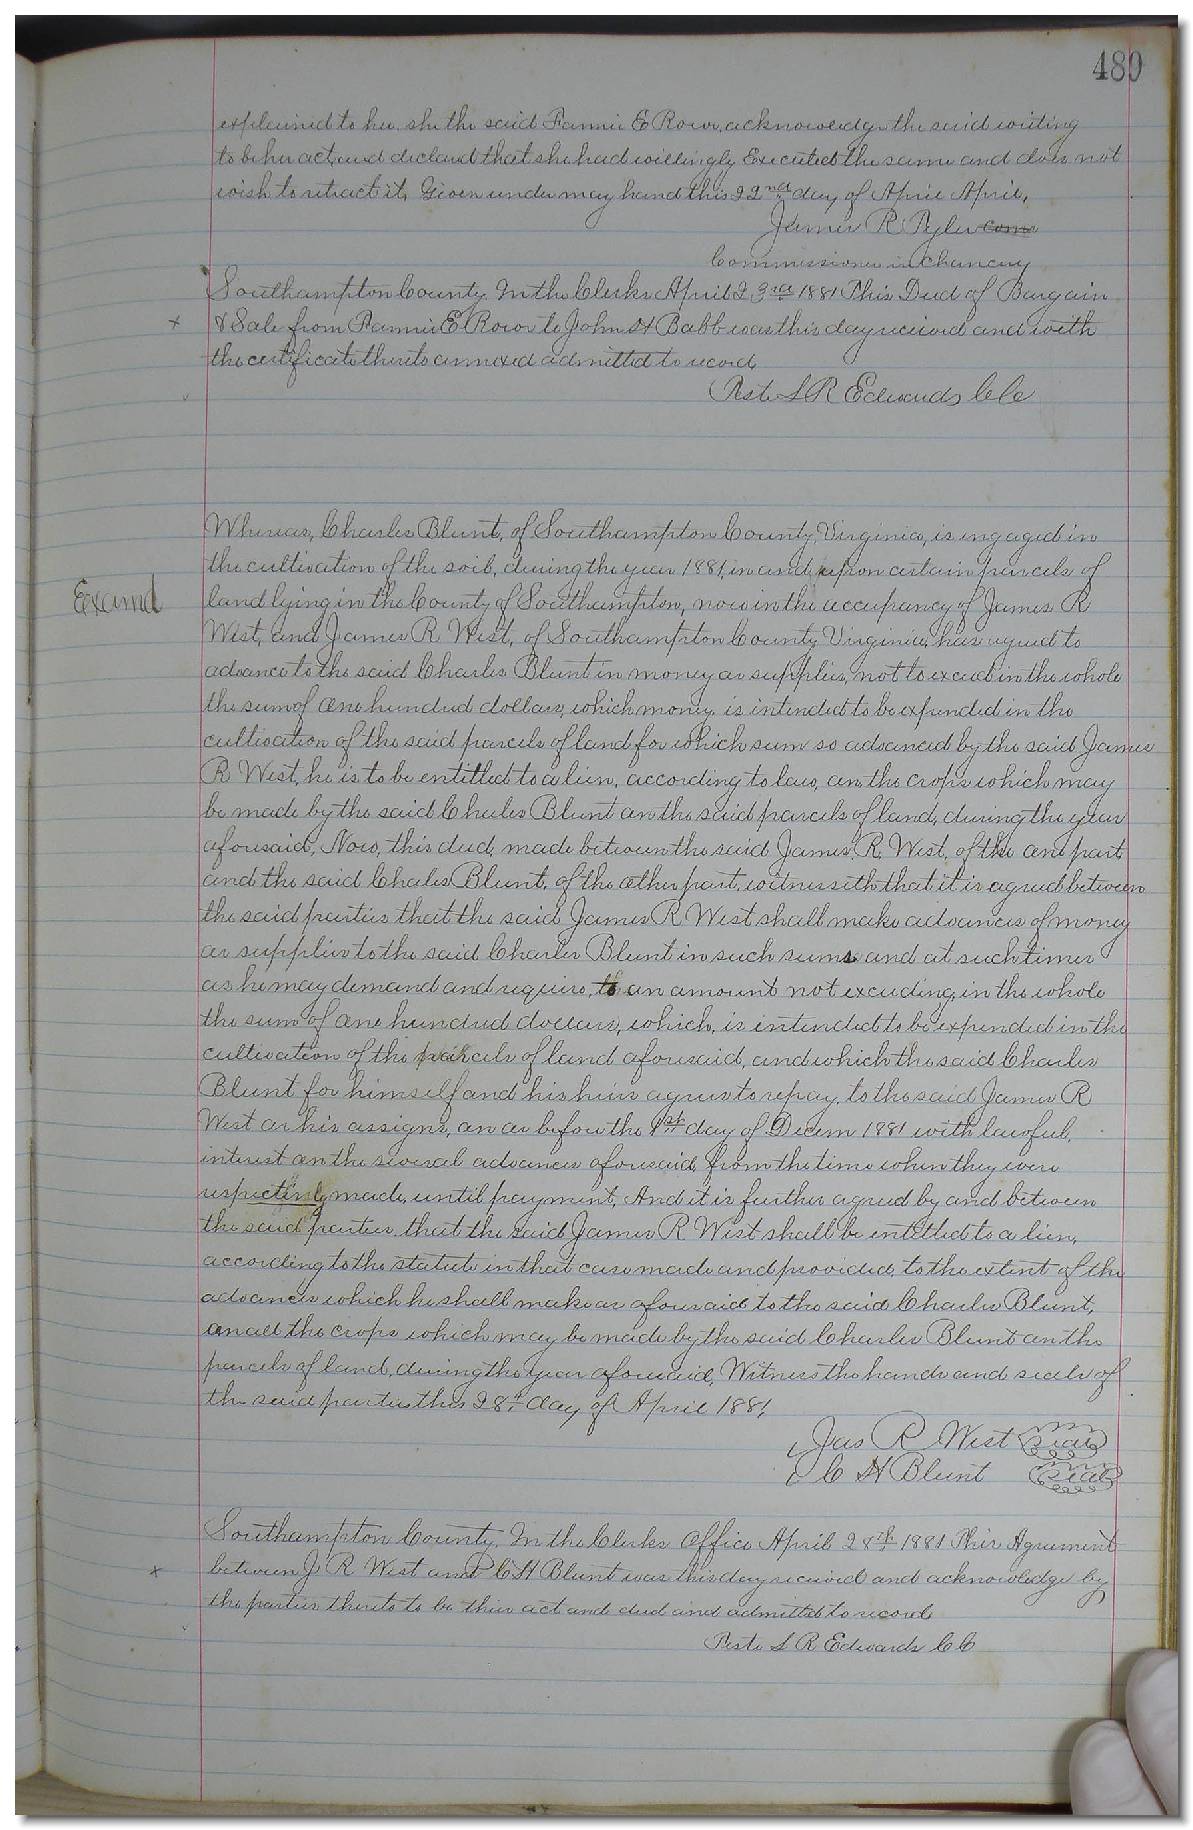 489
explained to her she the said Fannie E Row, acknowledge the said writing
to be her act, and declared that she had willingly Executed the same and does not
wish to retract it, Given under may hand this 22nd day of April April,
James R Pyler com
Commissioner in Chancery
Southampton County In the Clerks April 23rd 1881 This Deed of Bargain
x & Sale from Fannie E Row to John H Babb was this day received and with
the certificate thereto annexed admitted to record
Test S R Edwards C C
Whereas, Charles Blunt, of Southampton County, Virginia, is engaged in
the cultivation of the soil, during the year 1881, in and upon certain parcels of
Examd
land lying in the County of Southampton, now in the occupancy of James R
West, and James R West, of Southampton County Virginia, has agreed to
advance to the said Charles Blunt in money or supplies, not to exceed in the whole
the sum of one hundred dollars, which money is intended to be expended in the
cultivation of the said parcels of land for which sum so advanced by the said James
R West, he is to be entitled to a lien, according to law, on the crops which may
be made by the said Charles Blunt on the said parcels of land, during the year
aforesaid, Now, this deed, made between the said James R. West, of the one part
and the said Charles Blunt, of the other part, witnesseth that it is agreed between
the said parties that the said James R West shall make advances of money
or supplies to the said Charles Blunt in such sums and at such times
as he may demand and require, to an amount not exceeding in the whole
the sum of one hundred dollars, which, is intended to be expended in the
cultivation of the parcels of land aforesaid, and which the said Charles
Blunt for himself and his heirs agrees to repay, to the said James R
West or his assigns, on or before the 1st day of Decem 1881 with lawful,
interest on the several advances aforesaid, from the time when they were
respectively made, until payment, And it is further agreed by and between
the said parties that the said James R West shall be entitled to a lien,
according to the statute in that case made and provided, to the extent of the
advances which he shall make as aforesaid to the said Charles Blunt,
on all the crops which may be made by the said Charles Blunt on the
parcels of land, during the year aforesaid, Witness the hands and seals of
the said parties this 28th day of April 1881,
Jas R West Seal
C H Blunt Seal
Southampton County, In the Clerks Office April 28th 1881 This Agreement
x between J R West and C H Blunt was this day received and acknowledge by
the parties thereto to be their act and deed and admitted to record
Teste S R Edwards C C